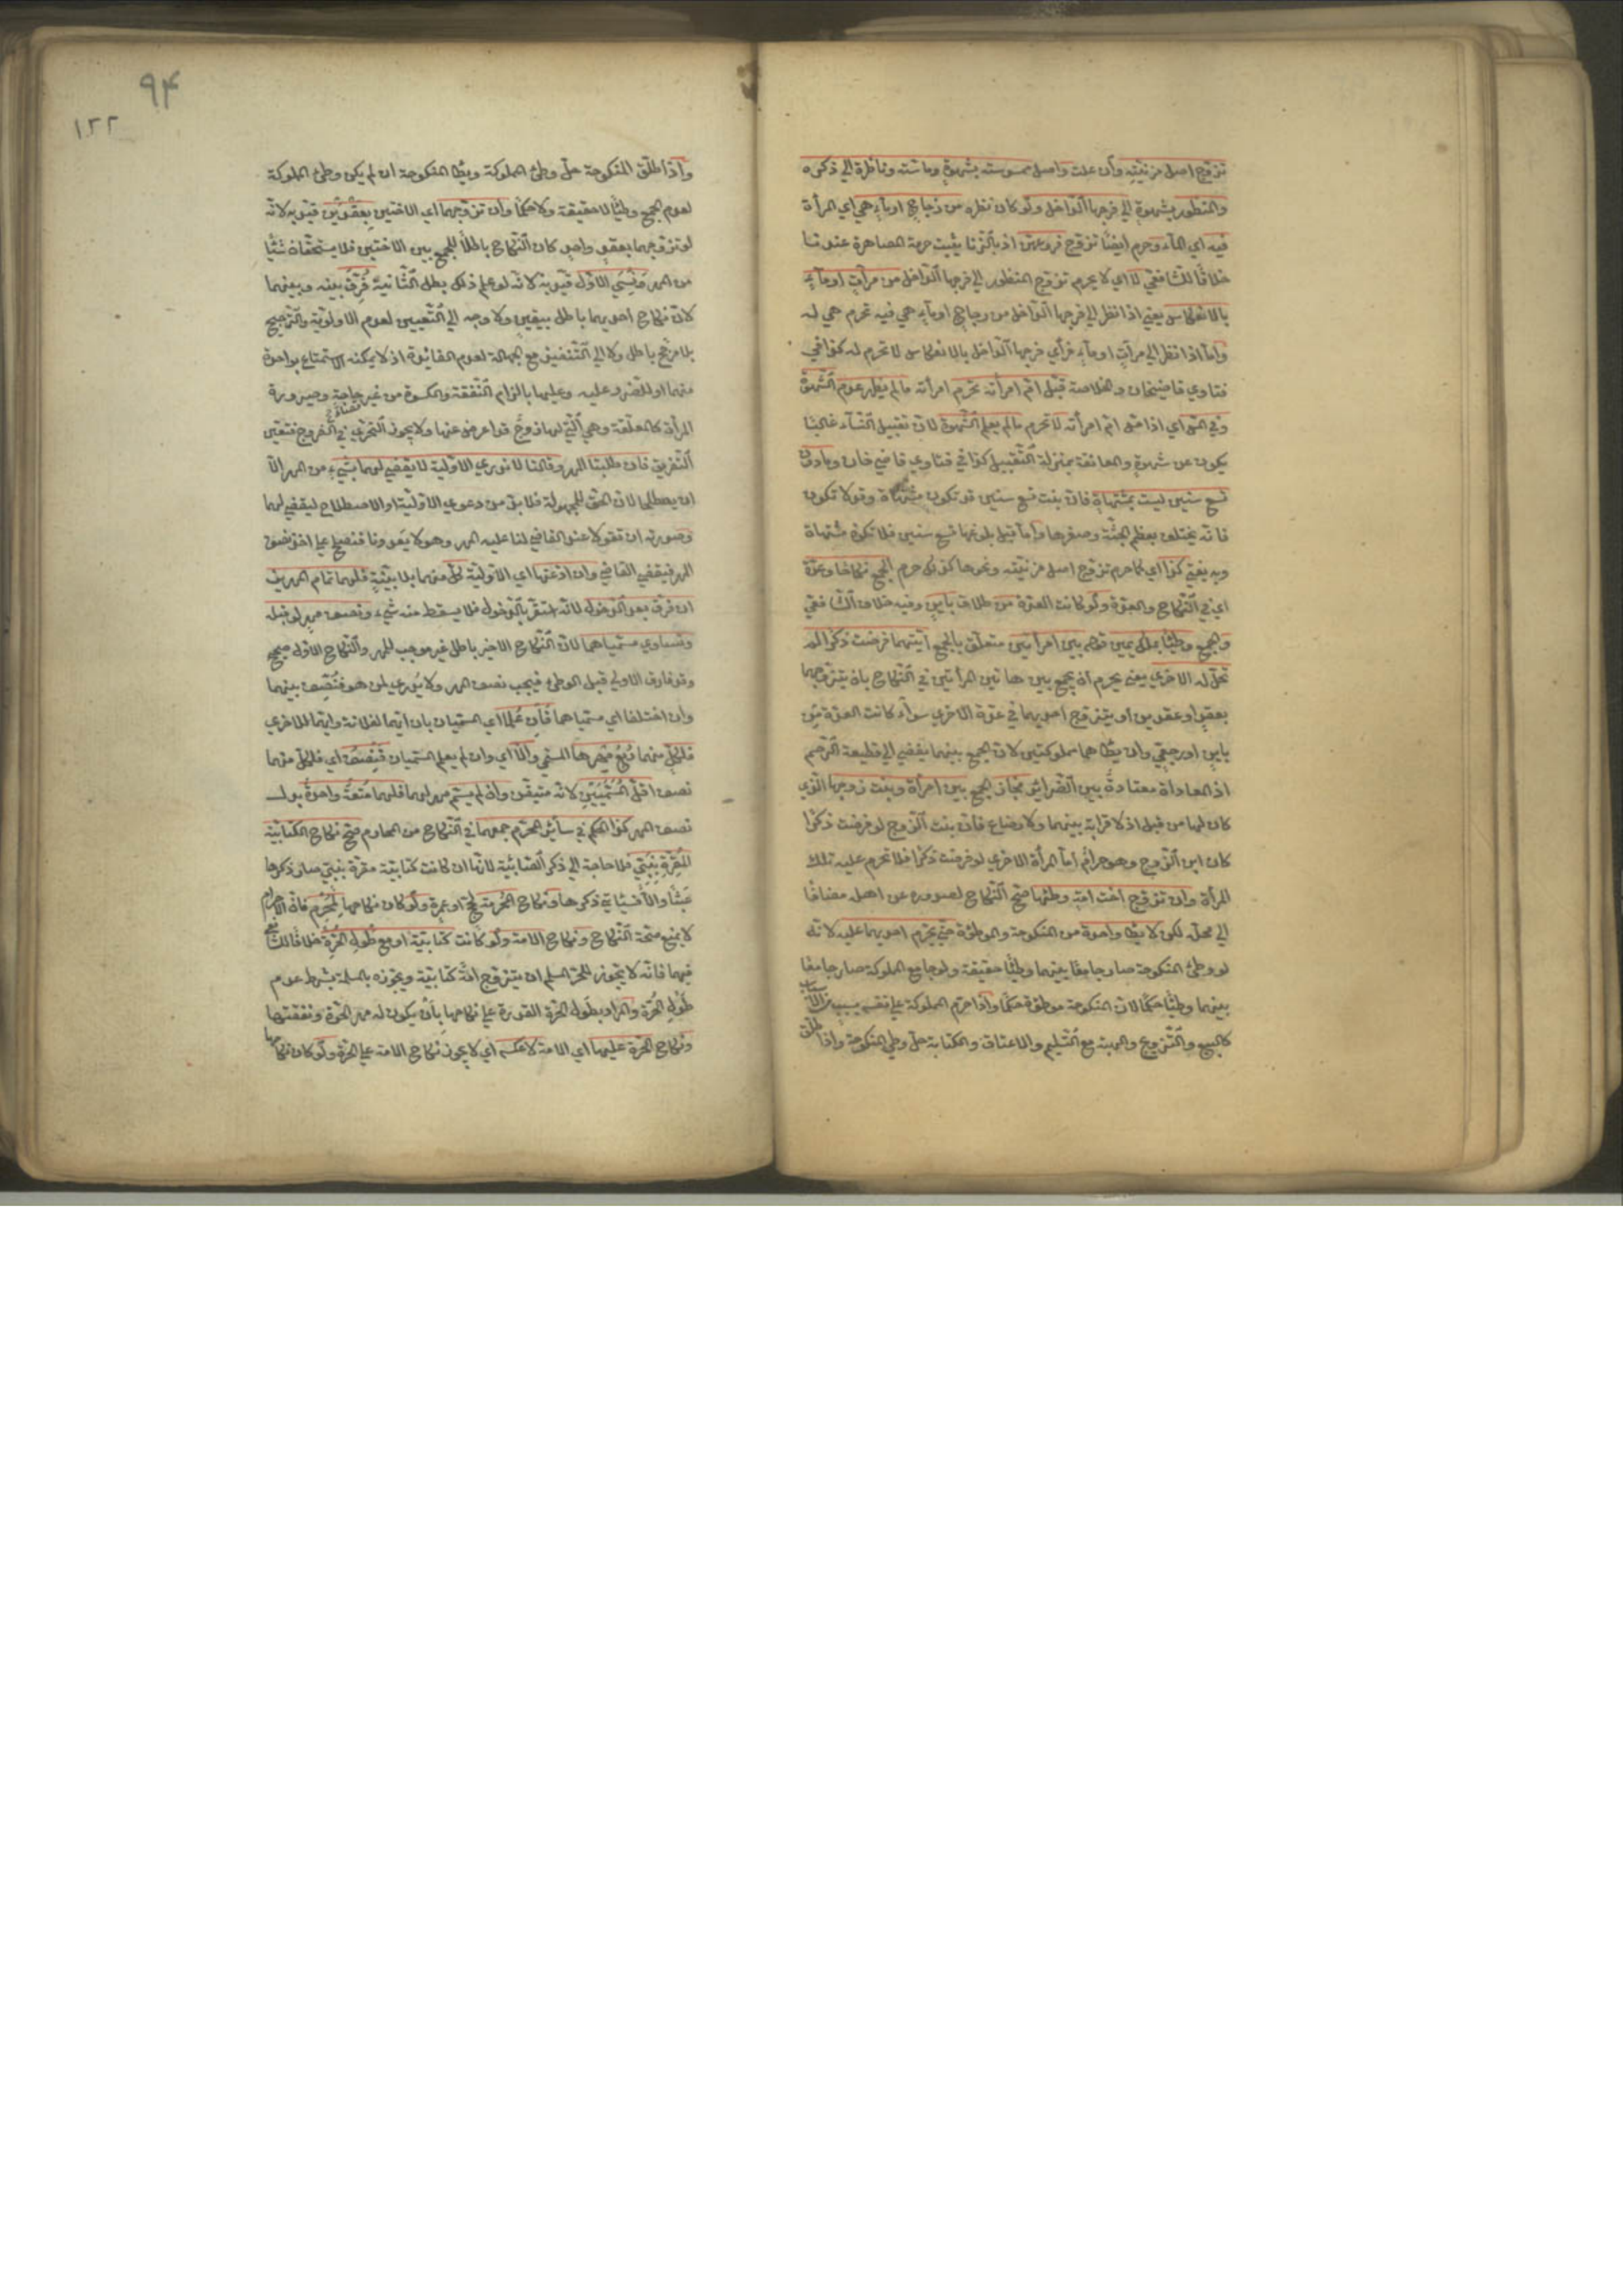 تزوّج اصل مزنيّته وأن علت واصل ممسوسته بشهوةٍ وماسّته وناظرة الي ذكره
والمنظور بشهوةٍ الي فرجها الدّاخل ولو كان نظره من زجاجٍ او ماءٍ هي اي المرأة
فيه اي الماء وحرم ايضًا تزوّج فروعهنّ اذ بالزنا يثبت حرمة المصاهرة عندنا
خلافًا للشافعيّ لا اي لا يحرم تزوّج المنظور الي فرجها الدّاخل من مرآتٍ او ماءٍ
بالانعكاس يعني اذا نظر الي فرجها الدّاخل من زجاج او ماءٍ هي فيه تحرم هي له
وامّا اذا نظر الي مرآتٍ او ماءٍ فرأي فرجها الدّاخل بالانعكاس لا تحرم له كذا في
فتاوي قاضيخان والخلاصة قبّل امّ امرأته تحرّم امرأته ما لم يظهر عدم الشّهوة
وفي المسّ اي اذا مسّ امّ امرأته لا تحرم ما لم يعلم الشّهوة لانّ تقبيل النساء غالبًا
يكون عن شهوةٍ والمعانقة بمنزلة التّقبيل كذا في فتاوي قاضي خان وما دون
تسع سنين ليست بمشتهاةٍ فانّ بنت تسع سنين قد تكون مشتهاة وقد لا تكون
فانّه يختلف بعظم الجثّة وصغرها وامّا قبل بلوغها تسع سنين فلا تكون مشتهاة
وبه يفتي كذا اي كما حرم تزوّج اصل مزنيّته ونحوها كذلك حرم الجمع نكاحًا وعدّة
اي في النّكاح والعدّة ولو كانت العدّة من طلاق باينٍ وفيه خلاف الشّافعي
والجمع وطئًا بملك يمين قوله بين امرأتين متعلّق بالجمع ايّتهما فرضت ذكرًا لم
تحلّ له الاخري يعني يحرم ان يجمع بين هاتين المرأتين في النّكاح بان يتزوّجهما
بعقدٍ او عقدين او يتزوّج احديهما في عدّة الاخري سواء كانت العدّة من
باينٍ او رجعيٍّ وان يطأهما مملوكتين لانّ الجمع بينهما يفضي الي قطيعة الرّحم
اذ المعاداة معتادةٌ بين الضّرائر فجاز الجمع بين امرأة وبنت زوجها الّذي
كان لها من قبل اذ لا قرابة بينهما ولا رضاع فانّ بنت الزّوج لو فرضت ذكرًا
كان ابن الزّوج وهو حرامٌ امّا المرأة الاخري لو فرضت ذكرًا فلا تحرم عليه تلك
المرأة وان تزوّج اخت امةٍ وطئها صحّ النّكاح لصدوره عن اهله مضافًا
الي محلّه لكن لا يطأ واحدة من المنكوحة والموطؤة حتّي يحرّم احديهما عليه لانّه
لو وطئ المنكوحة صار جامعًا بينهما وطئًا حقيقة ولو جامع المملوكة صار جامعًا
بينهما وطئًا حكمًا لانّ المنكوحة موطؤة حكمًا واذا حرّم المملوكة علي نفسه بسببٍ من الاسباب
كالبيع والتّزويج والهبة مع التّسليم والاعتاق والكتابة حلّ وطئ المنكوحة واذا طلّق
٩۴
١٢٢
واذا طلّق المنكوحة حلّ وطئ المملوكة ويطأ المنكوحة ان لم يكن وطئ المملوكة
لعدم الجمع وطئًا لا حقيقة ولا حكمًا وان تزوّجهما اي الاختين بعقدين قيّد به لانّه
لو تزوّجهما بعقدٍ واحدٍ كان النّكاح باطلًا للجمع بين الاختين فلا يستحقّان شيئًا
من المهر ونسي الاوّل قيّد به لانّه لو علم ذلك بطل الثّانية فُرِّقَ بينه وبينهما
لانّ نكاح احديهما باطل بيقين ولا وجه الي التّعيين لعدم الاولويّة والتّرجيح
بلا مرجّح باطل ولا الي التّنفيذ مع الجهالة لعدم الفائدة اذ لا يمكنه الاستمتاع بواحدة
منهما او للضّرر عليه وعليهما بالزام النّفقة والكسوة من غير حاجة وصيرورة
المرأة كالمعلّقة وهي الّتي لها زوجٌ قد اعرض عنها ولا يجوز التحرّي في الفروج فتعيّن
التّفريق فان طلبتا المهر وقالتا لا ندري الاوّلية لا يقضي لهما بشيءٍ من المهر الّا
ان يصطلحا لانّ الحقّ للمجهولة فلا بدّ من دعوي الاوّليّة او الاصطلاح ليقضي لهما
وصورته ان تقولا عند القاضي لنا عليه المهر وهو لا يعدونا فنصطلح علي اخذ نصف
المهر فيقضي القاضي وان ادّعتها اي الاوّليّة كلٌّ منهما بلا بيّنةٍ فلهما تمام المهرين
ان فرّق بعد الدّخول لانّه استقرّ بالدّخول فلا يسقط منه شيء ونصف مهرٍ لو قبله
وتساوي مسمّياهما لانّ النّكاح الاخير باطل غير موجب للمهر والنّكاح الاوّل صحيح
وقد فارق الاولي قبل الوطئ فيجب نصف المهر ولا يُدري لمن هو فنُصِّف بينهما
وان اختلفا اي مسمّياهما فان عُلِما اي المسمّيان بان ايّهما لفلانة وايّهما للاخري
فلكلٍّ منهما رُبعُ مهرها المسمّي والّا اي وان لم يعلم المسمّيان فنصف اي فلكلّ منهما
نصف اقلّ المسمّيين لانّه متيقّن وان لم يسمّ مهرٌ لهما فلهما متعةٌ واحدةٌ بدل
نصف المهر كذا الحكم في سائر المحرّم جمعهما في النّكاح من المحارم صحّ نكاح الكتابيّة
المُقِرّةِ بنبيٍّ فلا حاجة الي ذكر الصّابئيّة لانّها ان كانت كتابيّة مقرّة بنبيٍّ صار ذكرها
عبثًا والّا فسيأتي ذكرها ونكاح المُحرِمة لحجّ او عمرةٍ ولو كان نكاحها لمُحرِمٍ فانّ الاحرام
لا يمنع صحّة النّكاح ونكاح الامة ولو كانت كتابيّة او مع طَوْل الحُرّة خلافًا للشّافعي
فيهما فانّه لا يجوز للحرّ المسلم ان يتزوّج امةً كتابيّة ويجوّزه بالمسلمة بشرط عدم
طَوْلِ الحُرّة والمراد بطَول الحُرّة القدرة علي نكاحها بأن يكون له مهر الحُرّة ونفقتها
ونكاح الحُرّة عليها اي الامة لا عكسه اي لا يجوز نكاح الامة علي الحُرّة ولو كان نكاحها